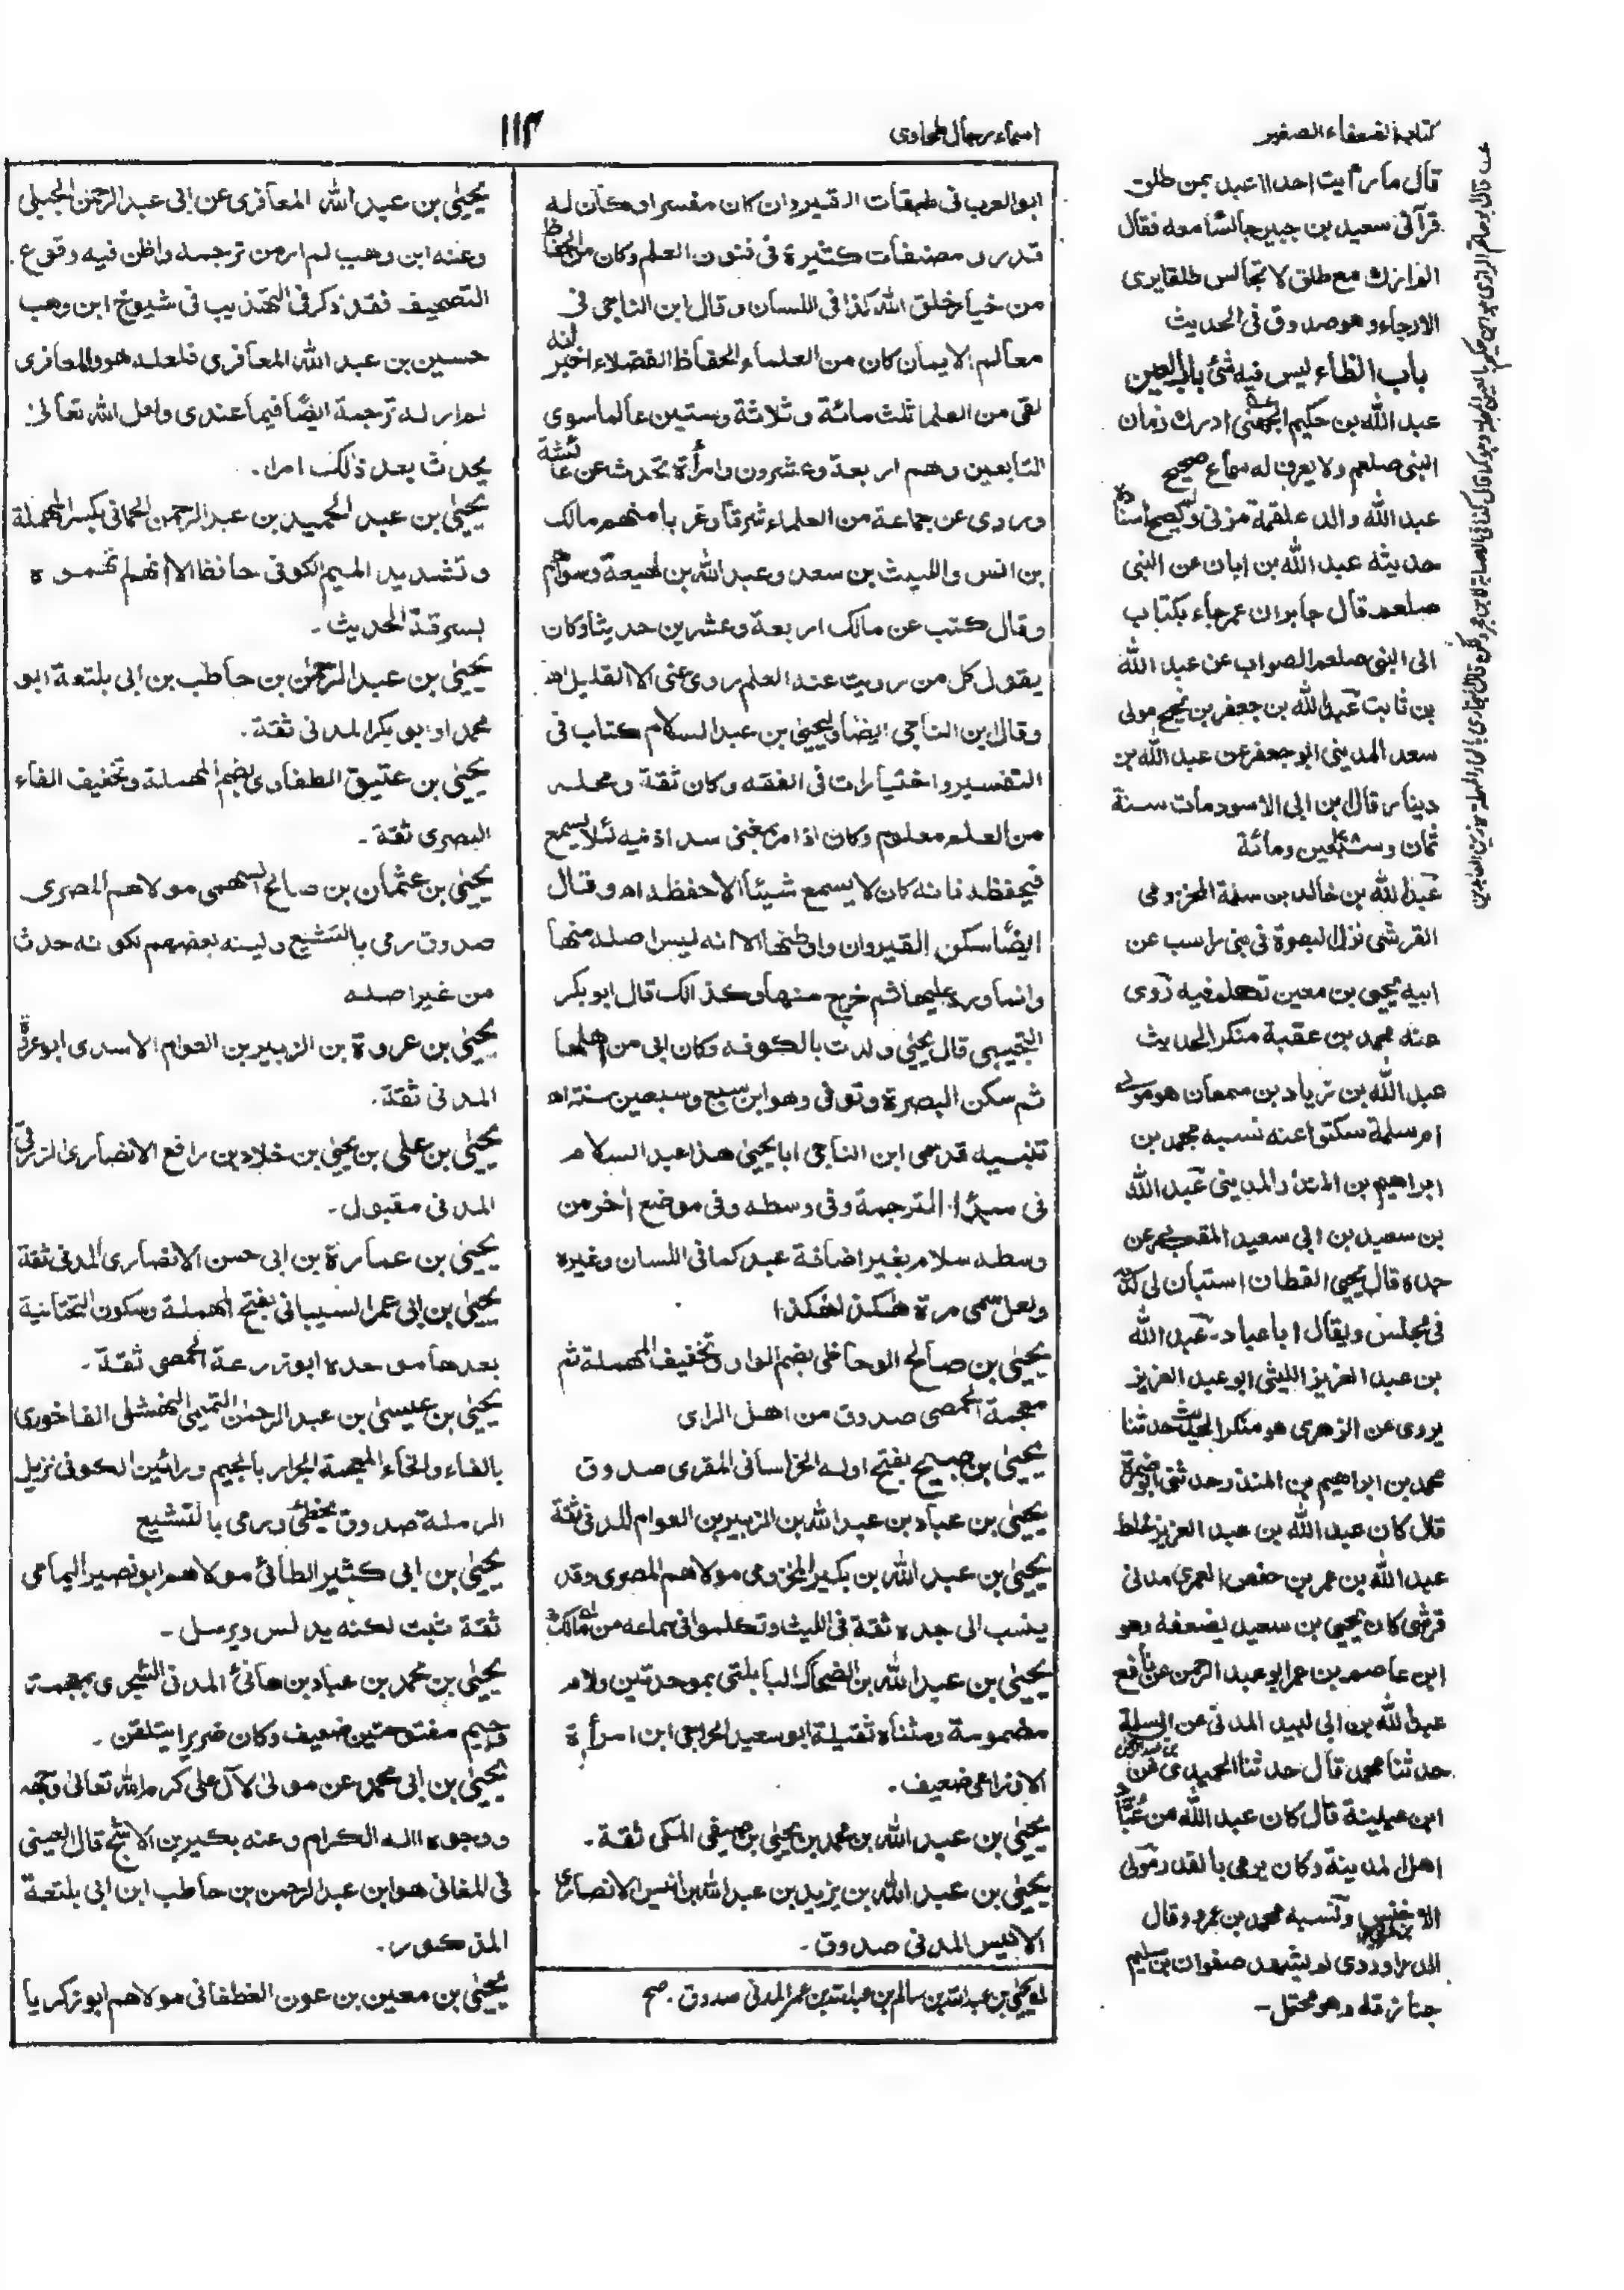 كتاب الضعفاء الصغير
اسماء رجال طحاوى
١١٣
قال ما رأيت احدا اعبد بمن طلق
قرآنى سعيد بن جبير جالسًا معه فقال
الم ارك مع طلق لا تجالس طلقا يرى
الارجاء وهو صدوق فى الحديث
باب الظاء ليس فيه شئ باب العين
عبد الله بن حكيم الجهنى ادرك زمان
النبى صلعم ولا يعرف له سماع صحيح
عبد الله والد علقمة مزنى ولم يصح اسناده
حديثه عبد الله بن ابان عن النبى
صلعم قال جابر ان عمر جاء بكتاب
الى النبى صلعم الصواب عن عبد الله
بن ثابت عبد الله بن جعفر بن نجيح مولى
سعد المدينى ابو جعفر عن عبد الله بن
دينار قال ابن ابى الاسود مات سنة
ثمان وسبعين ومائة
عبد الله بن خالد بن سلمة المخزومى
القرشى نزل البصرة فى بنى راسب عن
ابيه يحيى بن معين تكلم فيه روى
عنه محمد بن عقبة منكر الحديث
عبد الله بن زياد بن سمعان هو مولى
ام سلمة سكتوا عنه نسبه محمد بن
ابراهيم بن المنذر المدينى عبد الله
بن سعيد بن ابى سعيد المقبرى عن
جده قال يحيى القطان استبان لى كذبه
فى مجلس ويقال ابا عباد۔ عبد الله
بن عبد العزيز الليثى ابو عبد العزيز
يروى عن الزهرى هو منكر الحديث حدثنا
محمد بن ابراهيم بن المنذر وحدثنى ابو ضمرة
قال كان عبد الله بن عبد العزيز خلط
عبد الله بن عمر بن حفص العمرى مدنى
قرشى كان يحيى بن سعيد يضعفه وهو
ابن عاصم بن عمر ابو عبد الرحمن عن نافع
عبد الله بن ابى لبيد المدنى عن ابى سلمة
حدثنا محمد قال حدثنا الحميدى عن
ابن عيينة قال كان عبد الله من عباد
اهل المدينة وكان يرمى بالقدر مولى
الاخنس ونسبه محمد بن عمرو وقال
الدراوردى لم يشهد صفوان بن سليم
جنازته وهو محتمل۔
ابو العرب فى طبقات القيروان كان مفسرا وكان له
قدر ومصنفات كثيرة فى فنون العلم وكان من الحفاظ
من خيار خلق الله كذا فى اللسان وقال ابن الناجى فى
معالم الايمان كان من العلماء الحفاظ الفضلاء اخبر انه
لقى من العلما ثلث مائة وثلاثة وستين عالما سوى
التابعين وهم اربعة وعشرون وامرأة تحدث عن عائشة
وروى عن جماعة من العلماء شرقا وغربا منهم مالك
بن انس والليث بن سعد وعبد الله بن لهيعة وسواهم
وقال كتب عن مالك اربعة وعشرين حديثا وكان
يقول كل من رويت عنه العلم روى عنى الا القليل اه
وقال ابن الناجى ايضا وليحيى بن عبد السلام كتاب فى
التفسير واختيارات فى الفقه وكان ثقة ومحله
من العلم معلوم وكان اذا مر بمغنى سد اذنيه لئلا يسمع
فيحفظه فانه كان لا يسمع شيئا الا حفظه اه وقال
ايضًا سكن القيروان واوطنها الا انه ليس اصله منها
وانما ورد عليها ثم خرج منها وكذالك قال ابو بكر
التجيبى قال يحيى ولدت بالكوفه وكان ابى من اهلها
ثم سكن البصرة وتوفى وهو ابن سبع وسبعين سنة اه
تنبيه قد سمى ابن الناجى ابا يحيى هذا عبد السلام
فى مبدإ الترجمة وفى وسطه وفى موضع اخر من
وسطه سلام بغير اضافة عبد كما فى اللسان وغيره
ولعل سمى مرة هكذا هكذا
يحيى بن صالح الوحاظى بضم الواو وتخفيف المهملة ثم
معجمة الحمصى صدوق من اهل الراى
يحيى بن صبيح بفتح اوله الخراسانى المقرى صدوق
يحيى بن عباد بن عبد الله بن الزبير بن العوام المدنى ثقة
يحيى بن عبد الله بن بكير المخزومى مولاهم المصرى وقد
ينسب الى جده ثقة فى الليث وتكلموا فى سماعه من مالك
يحيى بن عبد الله بن الضحاك البابلتى بموحدتين ولام
مضمومة ومثناة ثقيلة ابو سعيد الحرانى ابن امرأة
الاوزاعى ضعيف۔
يحيى بن عبد الله بن محمد بن يحيى بن صيفى المكى ثقة۔
يحيى بن عبد الله بن يزيد بن عبد الله بن انيس الانصارى
الانيس المدنى صدوق۔
له يحيى بن عبد الله بن سالم بن عبد الله بن عمر المدنى صدوق۔ صح
يحيى بن عبد الله المعافرى عن ابى عبد الرحمن الحبلى
وعنه ابن وهب لم ار من ترجمه واظن فيه وقوع
التصحيف فقد ذكر فى التهذيب فى شيوخ ابن وهب
حسين بن عبد الله المعافرى فلعله هو والمعافرى
لم ار له ترجمة ايضًا فيما عندى ولعل الله تعالى
يحدث بعد ذالك امرا۔
يحيى بن عبد الحميد بن عبد الرحمن الحمانى بكسر المهملة
وتشديد الميم الكوفى حافظ الا انهم اتهموه
بسرقة الحديث۔
يحيى بن عبد الرحمن بن حاطب بن ابى بلتعة ابو
محمد او ابو بكر المدنى ثقة۔
يحيى بن عتيق الطفاوى بضم المهملة وتخفيف الفاء
البصرى ثقة۔
يحيى بن عثمان بن صالح السهمى مولاهم المصرى
صدوق رمى بالتشيع ولينه بعضهم لكونه حدث
من غير اصله
يحيى بن عروة بن الزبير بن العوام الاسدى ابو عروة
المدنى ثقة۔
يحيى بن على بن يحيى بن خلاد بن رافع الانصارى الزرقى
المدنى مقبول۔
يحيى بن عمارة بن ابى حسن الانصارى المدنى ثقة
يحيى بن ابى عمر السيبانى بفتح المهملة وسكون التحتانية
بعدها موحده ابو زرعة الحمصى ثقة۔
يحيى بن عيسى بن عبد الرحمن التميمى النهشلى الفاخورى
بالفاء والخاء المعجمة الجرار بالجيم ورائين الكوفى نزيل
الرملة صدوق يخطئ ورمى بالتشيع
يحيى بن ابى كثير الطائى مولاهم ابو نصير اليمامى
ثقة ثبت لكنه يدلس ويرسل۔
يحيى بن محمد بن عباد بن هانئ المدنى الشجرى بمعجمة
وجيم مفتوحتين ضعيف وكان ضريرا يتلقن۔
يحيى بن ابى محمد عن مولى لآل على كرم الله تعالى وجهه
ووجوه اله الكرام وعنه بكير بن الاشج قال العينى
فى المغانى هو ابن عبد الرحمن بن حاطب ابن ابى بلتعة
المذكور۔
يحيى بن معين بن عون الغطفانى مولاهم ابو زكريا